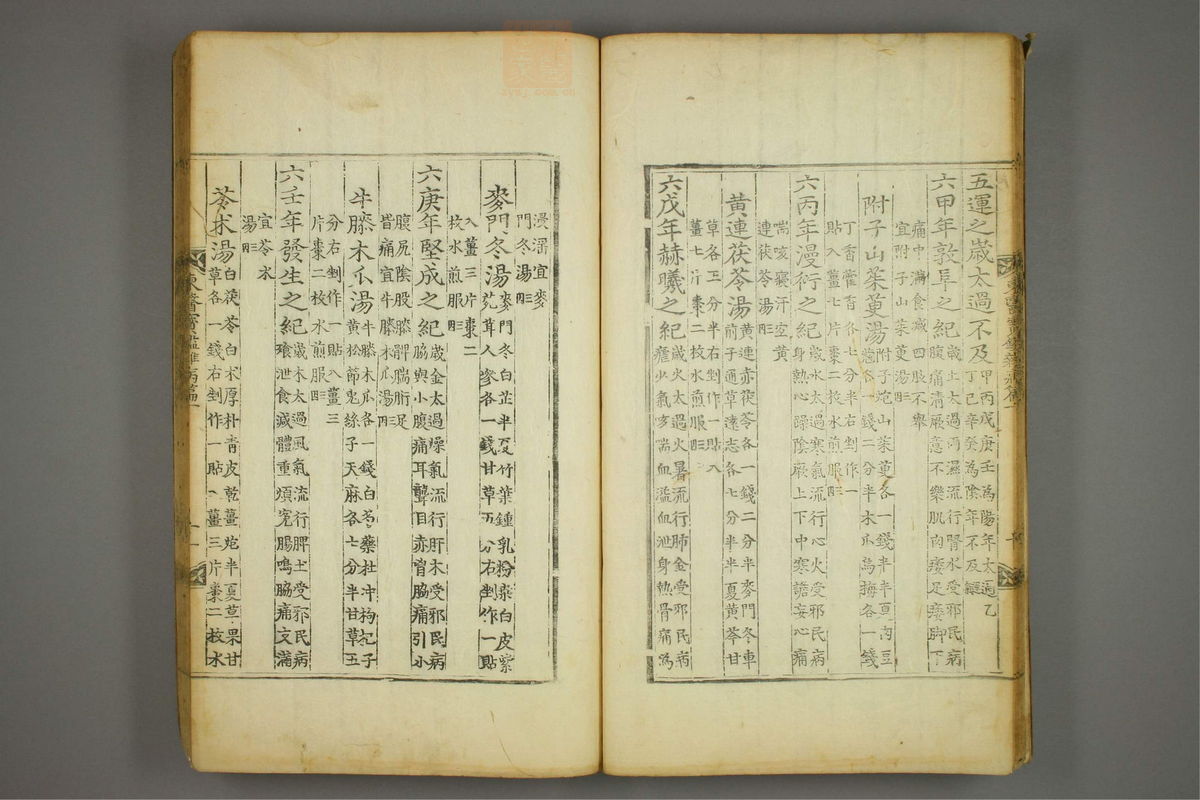 五運之歲太過不及 甲丙戊庚壬爲陽年太過乙
丁己辛癸爲陰年不及
六甲年敦阜之紀 歲土太過雨濕流行腎水受邪民病
腹痛清厥意不樂肌肉痿足痿脚下
痛中滿食減四肢不擧
宜附子山茱萸湯三因
附子山茱萸湯 附子炮山茱萸各一錢半半夏肉豆
蔲各一錢二分半木瓜烏梅各一錢
丁香藿香各七分半右剉作一
貼入薑七片棗二枚水煎服三因
六丙年漫衍之紀 歲水太過寒氣流行心火受邪民病
身熱心躁陰厥上下中寒譫妄心痛
喘咳寢汗宜黃
連茯苓湯三因
黃連茯苓湯 黃連赤茯苓各一錢二分半麥門冬車
前子通草遠志各七分半半夏黃芩甘
草各五分半右剉作一貼入
薑七片棗二枚水煎服三因
六戊年赫曦之紀 歲火太過火暑流行肺金受邪民病
瘧少氣咳喘血溢血泄身熱骨痛爲
浸淫宜麥
門冬湯三因
麥門冬湯 麥門冬白芷半夏竹葉鍾乳粉桑白皮紫
菀茸人參各一錢甘草五分右剉作一貼
入薑三片棗二
枚水煎服三因
六庚年堅成之紀 歲金太過燥氣流行肝木受邪民病
脇與小腹痛耳聾目赤胷脇痛引小
腹尻陰股膝髀腨䯒足
皆痛宜牛膝木瓜湯三因
牛膝木瓜湯 牛膝木瓜各一錢白芍藥杜冲枸杞子
黃松節兔絲子天麻各七分半甘草五
分右剉作一貼入薑三
片棗二枚水煎服三因
六壬年發生之紀 歲木太過風氣流行脾土受邪民病
飱泄食減體重煩寃腸鳴脇痛支滿
宜苓朮
湯三因
苓朮湯 白茯苓白朮厚朴靑皮乾薑炮半夏草果甘
草各一錢右剉作一貼入薑三片棗二枚水
東醫寶鑑雜病篇一